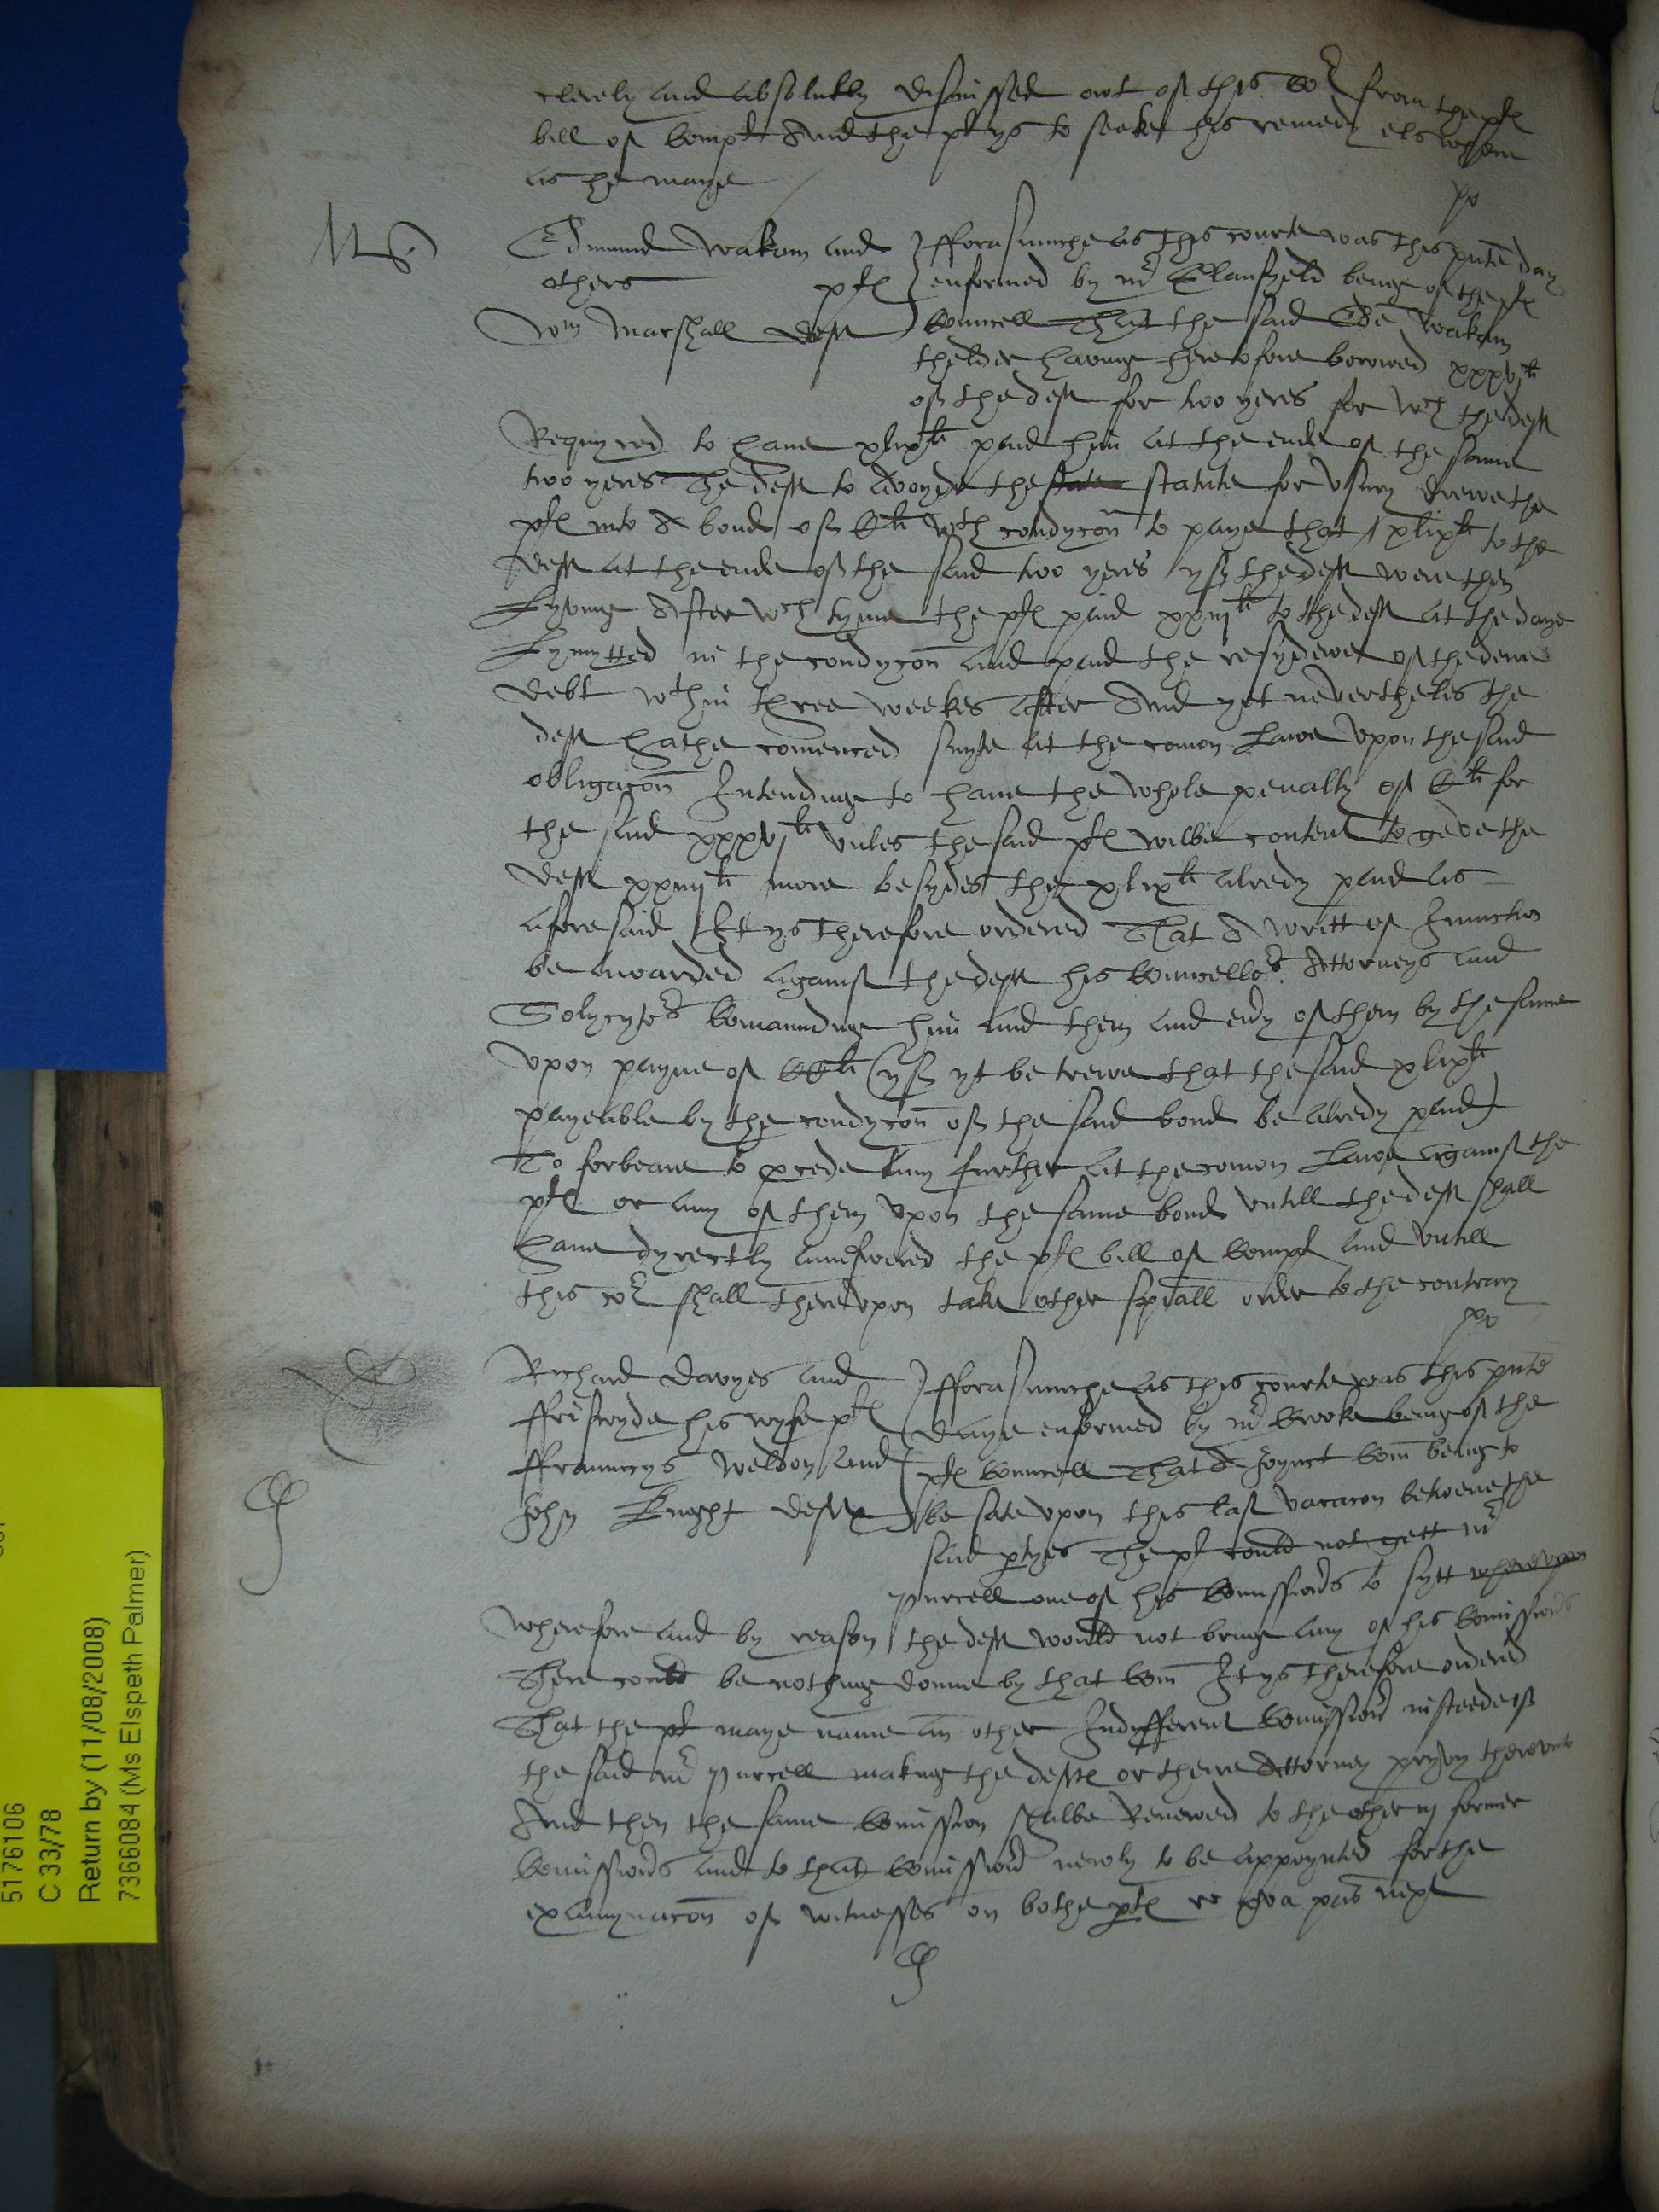 clerely and absolutely dismissed out of this Cor from the pl
bill of Compt And the pt ys to seeke his remedy els where
as he maye
po
Edmund Wakam and
others pl
Wm Marshall deft
fforasmuche as this courte was this pnte day
enformed by mr Glanfyeld being of the pl
Councell That the said Ed Wakam
thelder having heretofore borowed xxxvjli
of the deft for two yeres for wch the deft
Requyred to have xlixli paid him at the ende of the same
two yeres The deft to avoyde the state statute for vsury drewe the
pl into A bond of Cli wth condycon to paye that xlixli to the
deft at the ende of the said two yeres yf the deft were then
Lyving After wch tyme the pl paid xxiijli to the deft at the daye
Lymytted in the condycon and paid the resydewe of the
debt wthin three weekes after And yet nevertheles the
deft hathe comenced suyte at the comon Lawe vpon the said
obligacon Intending to have the whole penalty of Cli for
the said xxxvjli vnles the said pl wilbe content to geve the
deft xxiijli more besydes the xlixli alredy paid as
aforesaid It ys therefore ordered That A writt of Iniunction
be awarded against the deft his Councellors Attorneys and
Solycytors Comaunding him and them and euy of them by the same
vpon payne of CCli (yf yt be trewe that the said xlixli
payeable by the condycon of the said bond be alredy paid)
To forbeare to pcede any further at the comon Lawe against the
pl or any of them vpon the same bond vntill the deft shall
have dyrectly aunswered the pl bill of Compt and vntill
this cor shall therevpon take other spiall order to the contrary
po
Richard Davyes and
ffriswyde his wyfe pl
ffrauncys Weldon and
John Knight deftes
fforasmuche as this courte was this pnte
daye enformed by mr Brooke being of the
pl Councell That A Joynct Com being to
be sate vpon this last vacacon betwene the
said ptyes The pt could not gett mr
Purcell one of his Comissions to sytt wherevpon
wherefore and by reason the deft would not bring any of his Comissions
There could be nothing donne by that Com It ys therefore ordered
That the pt maye name an other Indyfferent Comission in steede of
the said mr Purcell making the deftes or theire Attorney pryvy therevnto
And then the same Comission shalbe Renewed to the other iij former
Comissions and to that Comission newly to be appoynted for the
examynacon of witnesses on bothe ptes re pas next
5176106
C 33/78
Return by (11/08/2008)
7366084 (Ms Elspeth Palmer)